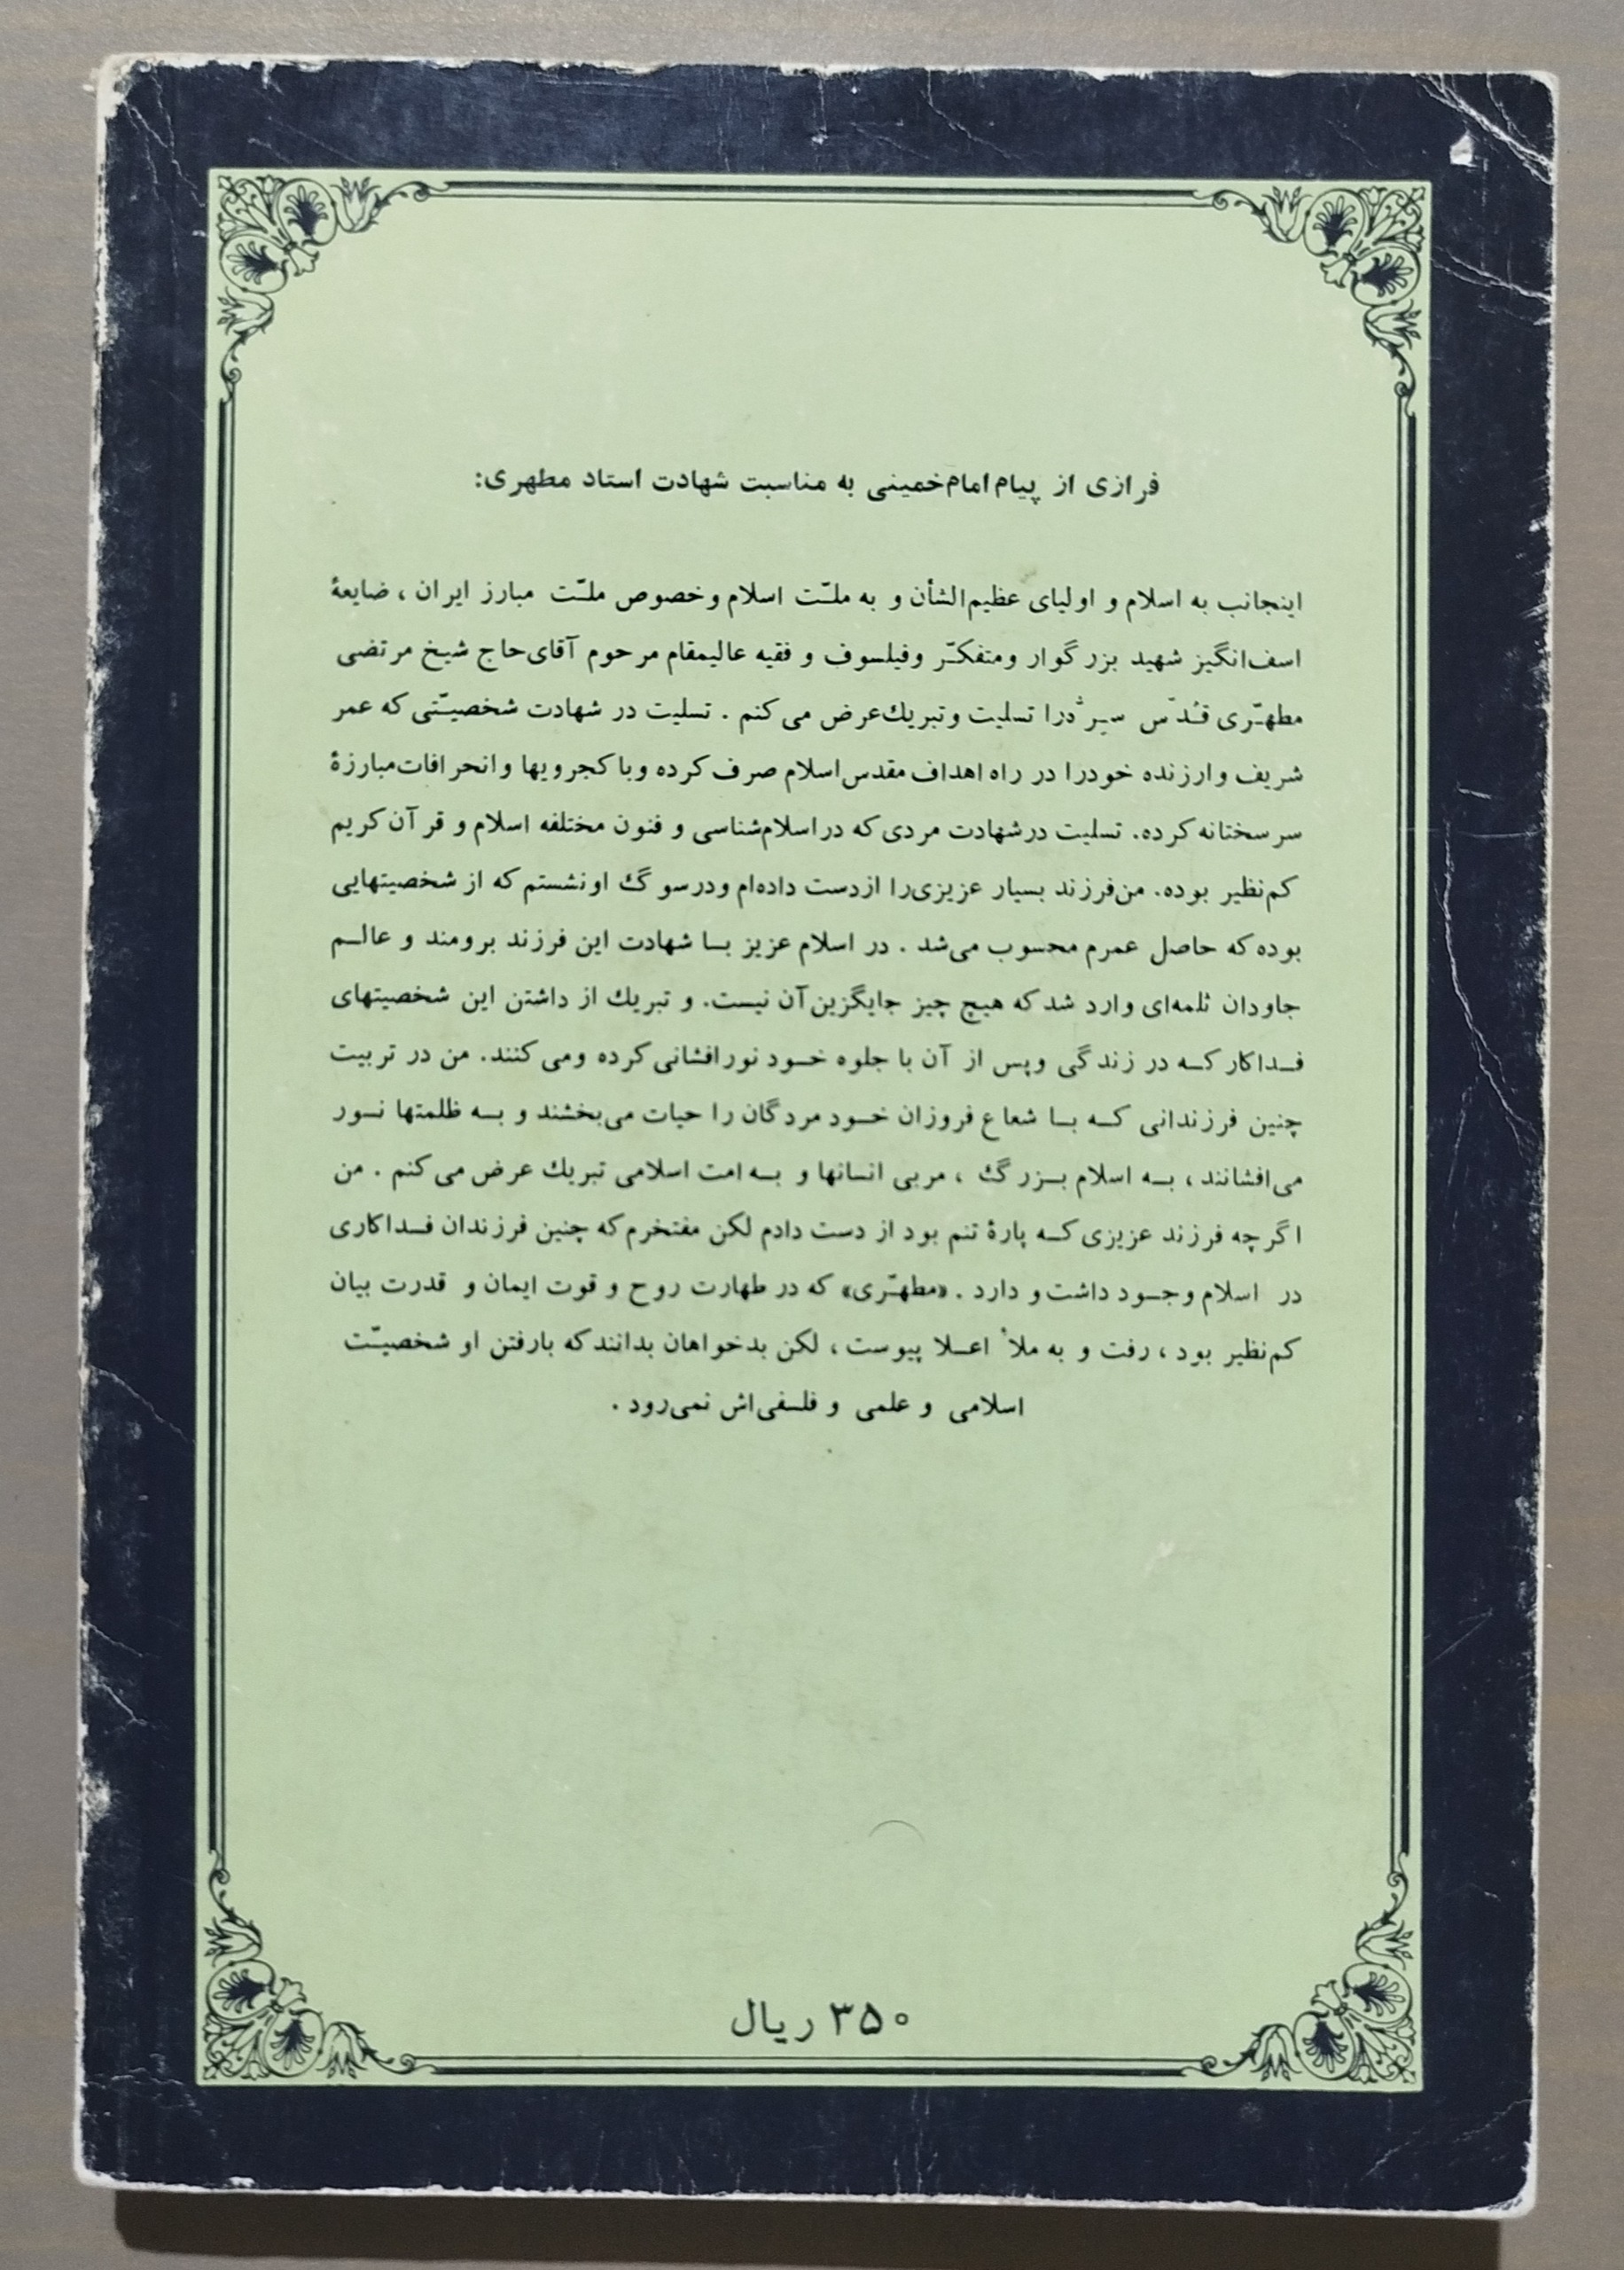 فرازی از پیام امام‌خمینی به مناسبت شهادت استاد مطهری:
اینجانب به اسلام و اولیای عظیم‌الشأن و به ملّت اسلام وخصوص ملّت مبارز ایران ، ضایعهٔ
اسف‌انگیز شهید بزرگوار ومتفکّر وفیلسوف و فقیه عالیمقام مرحوم آقای‌حاج شیخ مرتضی
مطهّری قدّس سرّه‌را تسلیت وتبریك‌عرض می‌کنم . تسلیت در شهادت شخصیّتی که عمر
شریف وارزنده خودرا در راه اهداف مقدس‌اسلام صرف کرده وبا کجرویها وانحرافات‌مبارزهٔ
سرسختانه کرده. تسلیت درشهادت مردی که دراسلام‌شناسی و فنون مختلفه اسلام و قرآن کریم
کم‌نظیر بوده. من‌فرزند بسیار عزیزی‌را ازدست داده‌ام ودرسوگ اونشستم که از شخصیتهایی
بوده که حاصل عمرم محسوب می‌شد . در اسلام عزیز بـا شهادت این فرزند برومند و عالـم
جاودان ثلمه‌ای وارد شد که هیچ چیز جایگزین آن نیست. و تبریك از داشتن این شخصیتهای
فـداکار کـه در زندگی وپس از آن با جلوه خـود نورافشانی کرده ومی‌کنند. من در تربیت
چنین فرزندانی کـه بـا شعاع فروزان خـود مردگان را حیات می‌بخشند و بـه ظلمتها نـور
می‌افشانند ، بـه اسلام بـزرگ ، مربی انسانها و بـه امت اسلامی تبریك عرض می‌کنم . من
اگرچه فرزند عزیزی کـه پارهٔ تنم بود از دست دادم لکن مفتخرم که چنین فرزندان فـداکاری
در اسلام وجـود داشت و دارد . «مطهّری» که در طهارت روح و قوت ایمان و قدرت بیان
کم‌نظیر بود ، رفت و به ملأ اعـلا پیوست ، لکن بدخواهان بدانند که بارفتن او شخصیّت
اسلامی و علمی و فلسفی‌اش نمی‌رود .
۳۵۰ ریال